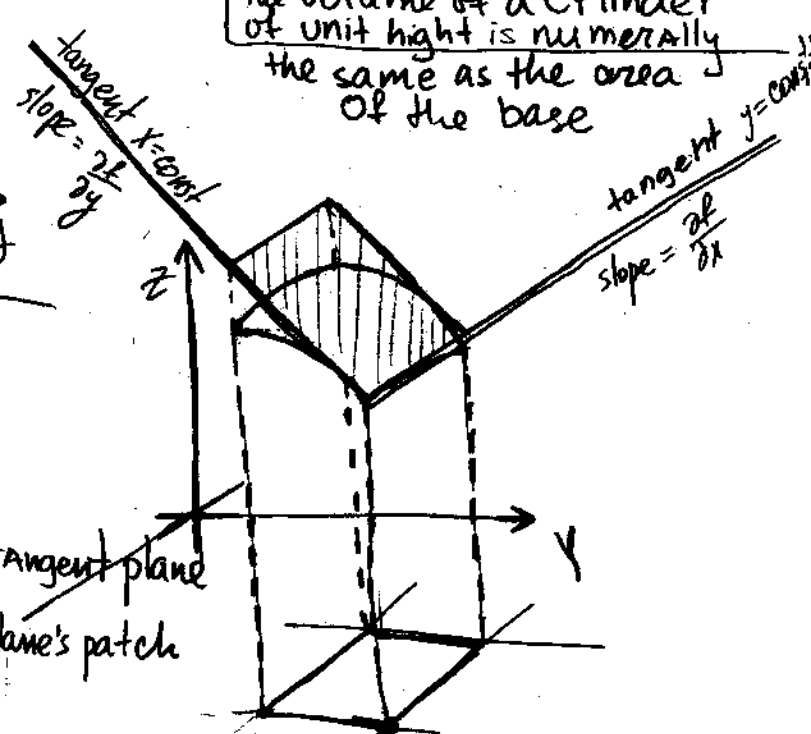 he volume of a cylinder
of unit hight is numerally
the same as the area
Of the base
tangent x=const
slope = ∂f/∂y
tangent y=const
slope = ∂f/∂x
Z
Y
tangent plane
lane's patch